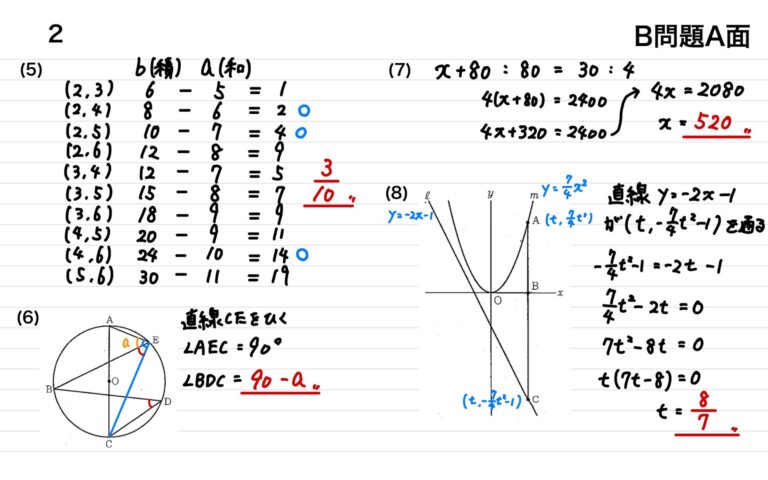 2
B問題A面
(5)
b(積) a(和)
(2,3) 6 - 5 = 1
(2,4) 8 - 6 = 2 ○
(2,5) 10 - 7 = 4 ○
(2,6) 12 - 8 = 9
(3,4) 12 - 7 = 5
(3,5) 15 - 8 = 7
(3,6) 18 - 9 = 9
(4,5) 20 - 9 = 11
(4,6) 24 - 10 = 14 ○
(5,6) 30 - 11 = 19
3/10 〃
(6)
A
a
E
O
B
D
C
直線CEをひく
∠AEC = 90°
∠BDC = 90 - a 〃
(7)
x+80 : 80 = 30 : 4
4(x+80) = 2400
4x+320 = 2400
4x = 2080
x = 520 〃
(8)
ℓ
y=-2x-1
y
m
y=7/4x²
A (t, 7/4t²)
B
O
x
C
(t, -7/4t²-1)
直線 y=-2x-1
が(t, -7/4t²-1)を通る
-7/4t²-1 = -2t-1
7/4t²-2t = 0
7t²-8t = 0
t(7t-8) = 0
t = 8/7 〃